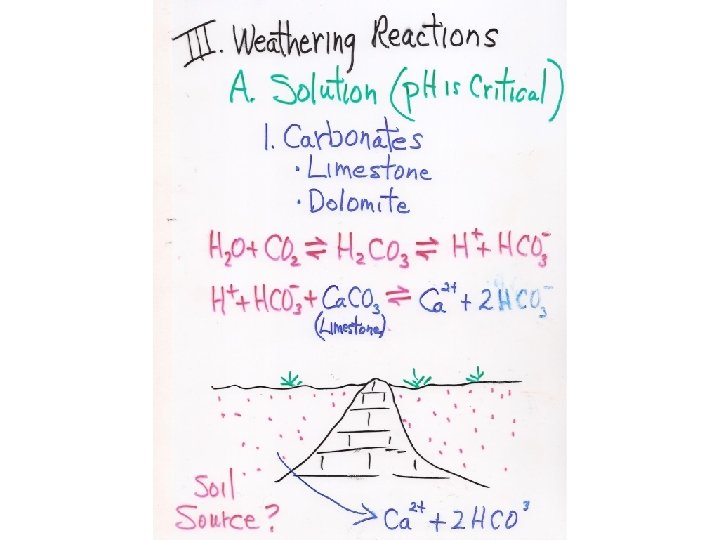 III. Weathering Reactions
A. Solution (pH is Critical)
1. Carbonates
· Limestone
· Dolomite
H₂O + CO₂ ⇌ H₂CO₃ ⇌ H⁺ + HCO₃⁻
H⁺ + HCO₃⁻ + CaCO₃ ⇌ Ca²⁺ + 2HCO₃⁻
(Limestone)
Soil
Source?
Ca²⁺ + 2HCO³